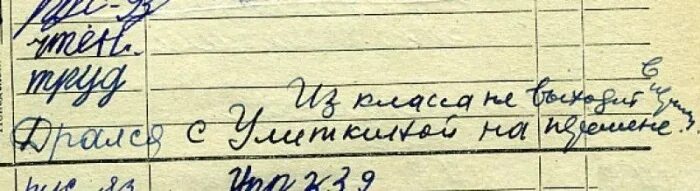 рус-яз
чтен.
труд
Из класса не выходит в
Дрался с Улиткиной на перемене.
рус-яз Упр 239